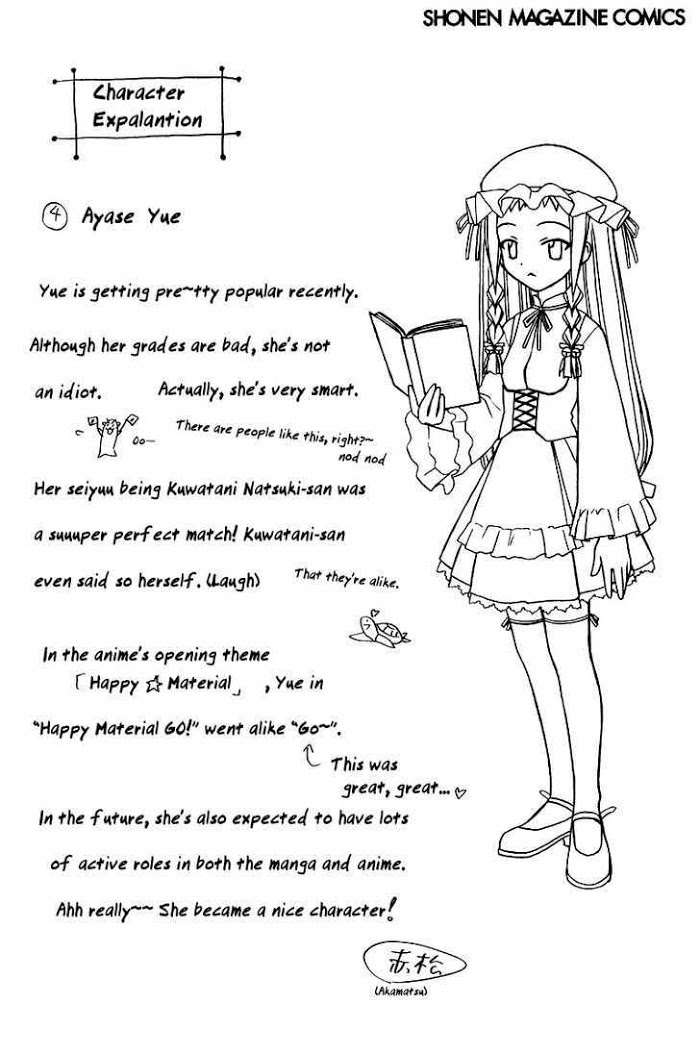 SHONEN MAGAZINE COMICS
Character
Expalantion
④ Ayase Yue
Yue is getting pre~tty popular recently.
Although her grades are bad, she's not
an idiot. Actually, she's very smart.
Oo—
There are people like this, right?~
nod nod
Her seiyuu being Kuwatani Natsuki-san was
a suuuper perfect match! Kuwatani-san
even said so herself. (Laugh) That they're alike.
In the anime's opening theme
「Happy ☆ Material」 , Yue in
"Happy Material GO!" went alike "Go~".
This was
great, great... ♡
In the future, she's also expected to have lots
of active roles in both the manga and anime.
Ahh really~~ She became a nice character!
赤松
(Akamatsu)